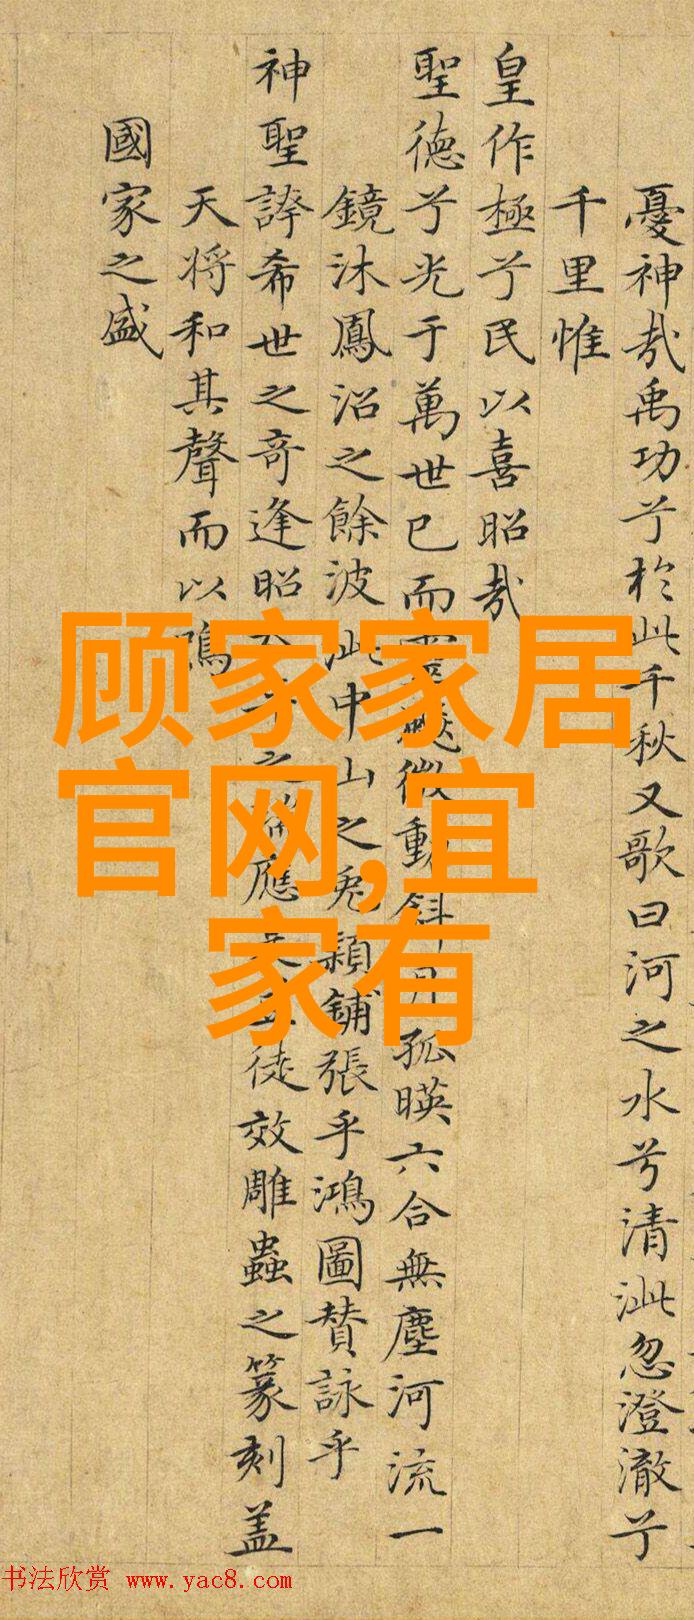 憂神哉禹功兮於此千秋又歌曰河之水兮清泚忽澄澈兮
千里惟
皇作極兮民以喜昭哉
聖德兮光于萬世已而微動斜月孤暎六合無塵河流一
鏡沐鳳沼之餘波泚中山之兔穎鋪張乎鴻圖賛詠乎
神聖誇希世之奇逢昭之應徒效雕蟲之篆刻盖
天将和其聲而以鳴
國家之盛
顾家家居
官网,宜
家有
书法欣赏 www.yac8.com